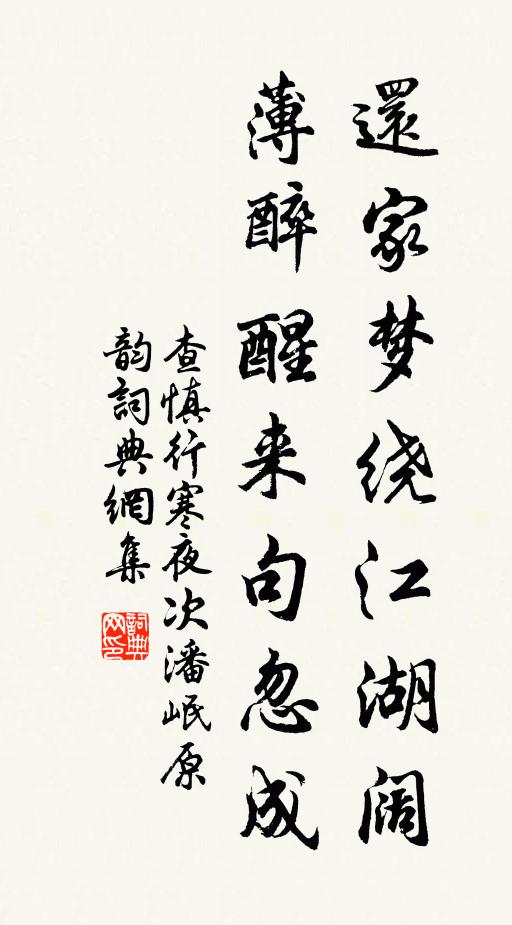 還家梦绕江湖阔
薄醉醒来句忽成
查慎行寒夜次潘岷原
韵詞典網集
詞典
网印